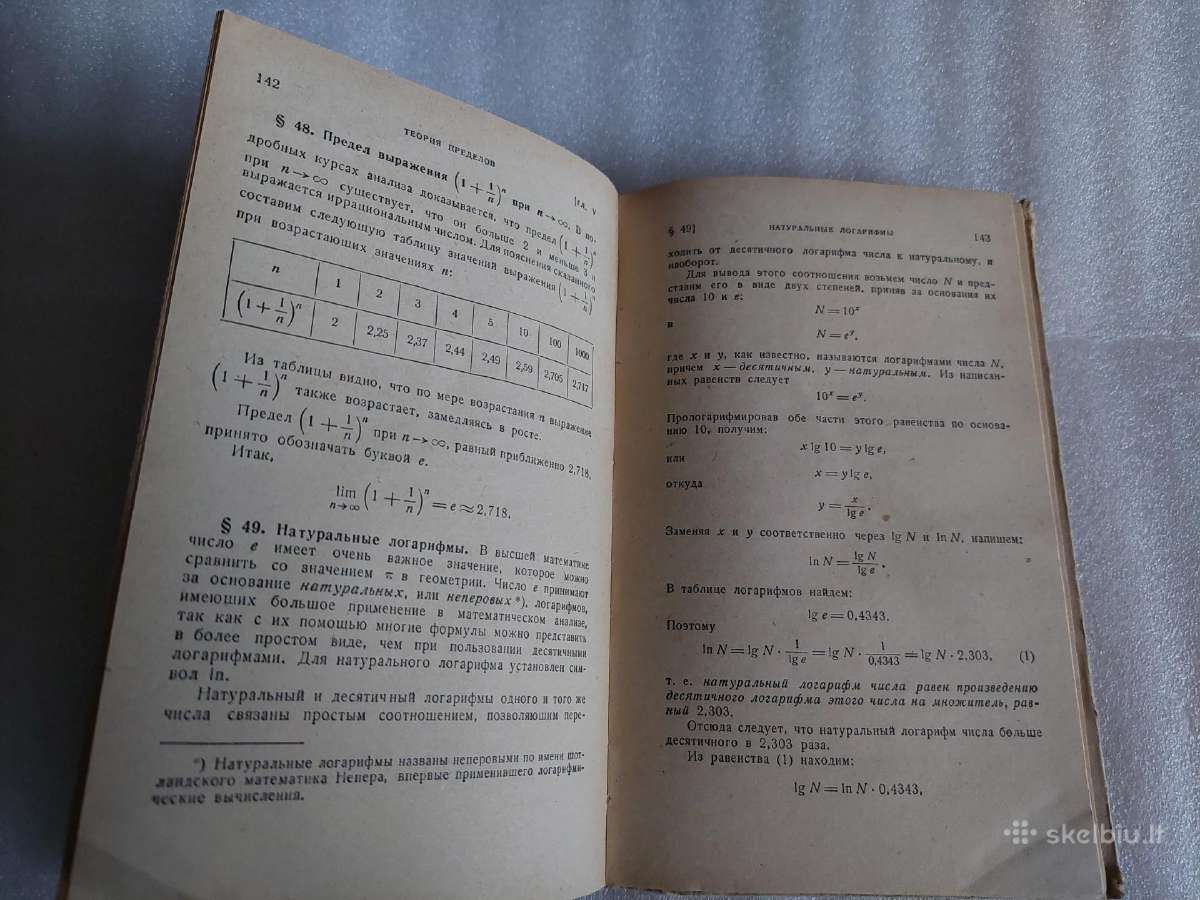 142
ТЕОРИЯ ПРЕДЕЛОВ
[гл. V
§ 48. Предел выражения (1 + 1/n)ⁿ при n → ∞. В по-
дробных курсах анализа доказывается, что предел (1 + 1/n)ⁿ
при n → ∞ существует, что он больше 2 и меньше 3 и
выражается иррациональным числом. Для пояснения сказанного
составим следующую таблицу значений выражения (1 + 1/n)ⁿ
при возрастающих значениях n:
n 1 2 3 4 5 10 100 1000
(1 + 1/n)ⁿ 2 2,25 2,37 2,44 2,49 2,59 2,705 2,717
Из таблицы видно, что по мере возрастания n выражение
(1 + 1/n)ⁿ также возрастает, замедляясь в росте.
Предел (1 + 1/n)ⁿ при n → ∞, равный приближенно 2,718,
принято обозначать буквой e.
Итак,
lim n→∞ (1 + 1/n)ⁿ = e ≈ 2,718.
§ 49. Натуральные логарифмы. В высшей математике
число e имеет очень важное значение, которое можно
сравнить со значением π в геометрии. Число e принимают
за основание натуральных, или неперовых *), логарифмов,
имеющих большое применение в математическом анализе,
так как с их помощью многие формулы можно представить
в более простом виде, чем при пользовании десятичными
логарифмами. Для натурального логарифма установлен сим-
вол ln.
Натуральный и десятичный логарифмы одного и того же
числа связаны простым соотношением, позволяющим пере-
*) Натуральные логарифмы названы неперовыми по имени шот-
ландского математика Непера, впервые применившего логарифми-
ческие вычисления.
§ 49]
НАТУРАЛЬНЫЕ ЛОГАРИФМЫ
143
ходить от десятичного логарифма числа к натуральному, и
наоборот.
Для вывода этого соотношения возьмем число N и пред-
ставим его в виде двух степеней, приняв за основания их
числа 10 и e:
N = 10ˣ
и
N = eʸ,
где x и y, как известно, называются логарифмами числа N,
причем x — десятичным, y — натуральным. Из написан-
ных равенств следует
10ˣ = eʸ.
Прологарифмировав обе части этого равенства по основа-
нию 10, получим:
x lg 10 = y lg e,
или
x = y lg e,
откуда
y = x/lg e.
Заменяя x и y соответственно через lg N и ln N, напишем:
ln N = lg N/lg e.
В таблице логарифмов найдем:
lg e = 0,4343.
Поэтому
ln N = lg N · 1/lg e = lg N · 1/0,4343 = lg N · 2,303, (1)
т. е. натуральный логарифм числа равен произведению
десятичного логарифма этого числа на множитель, рав-
ный 2,303.
Отсюда следует, что натуральный логарифм числа больше
десятичного в 2,303 раза.
Из равенства (1) находим:
lg N = ln N · 0,4343,
skelbiu.lt